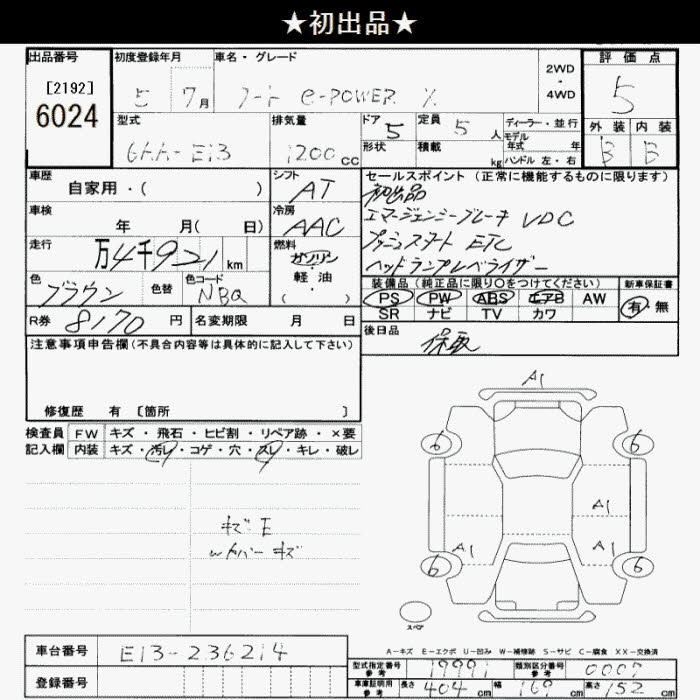 ★初出品★
出品番号
[2192]
6024
初度登録年月
5 7月
車名・グレード
ノート e-POWER X
2WD
・
4WD
評価点
5
型式
6AA-E13
排気量
1200cc
ドア
5
定員
5人
ディーラー・並行
モデル年式 年
形状
積載 kg
ハンドル 左・右
外装 内装
B B
車歴
自家用・( )
シフト
AT
セールスポイント(正常に機能するものに限ります)
初出品
エマージェンシーブレーキ VDC
プッシュスタート ETC
ヘッドランプレベライザー
車検
年 月( 日)
冷房
AAC
走行
万4千921km
燃料
ガソリン
・
軽・油
( ・ )
色
ブラウン
色替
色コード
NBQ
装備品(純正品に限り○をつけてください)
PS PW ABS エアB AW
SR ナビ TV カワ
新車保証書
有・無
R券 8170円
名変期限 月 日
後日品
保取
注意事項申告欄(不具合内容等は具体的に記入して下さい)
修復歴 有 〔箇所 〕
検査員
記入欄
FW キズ・飛石・ヒビ割・リペア跡・×要
内装 キズ・汚レ・コゲ・穴・スレ・キレ・破レ
キズ E
Wカバーキズ
A1
6 6
A1
A1 A1
6 6
スペア
A-キズ E-エクボ U-凹み W-補修跡 S-サビ C-腐食 XX-交換済
車台番号
E13-236214
登録番号
型式指定番号
参考
19991
類別区分番号
参考
0007
車庫証明用
参考
長さ 404cm 幅 169cm 高さ 152cm